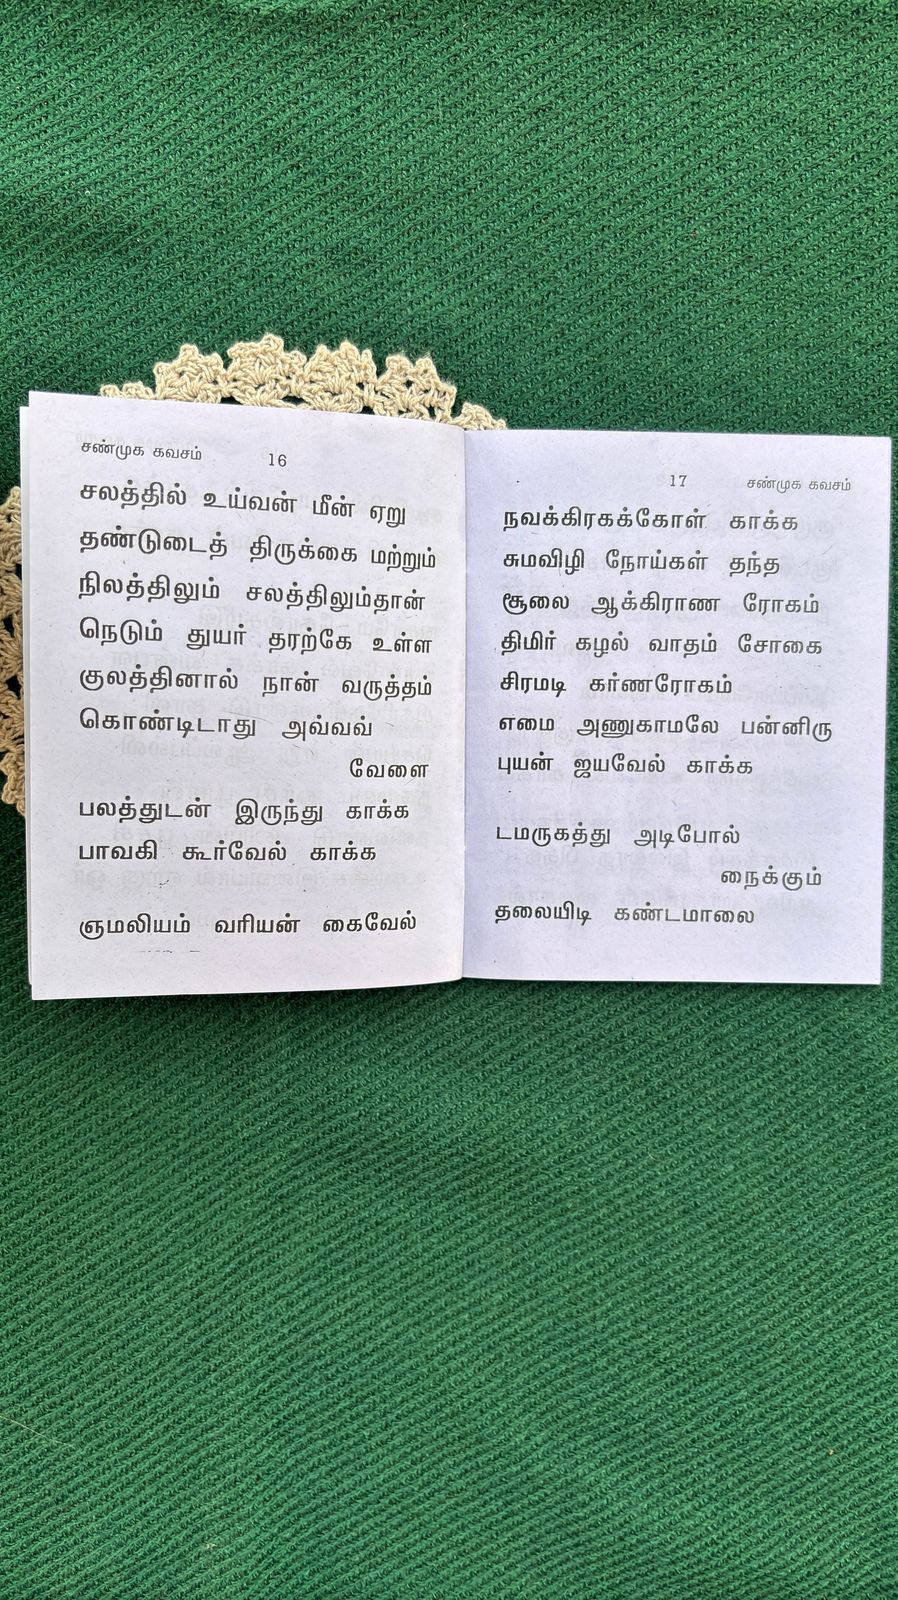 சண்முக கவசம் 16
சலத்தில் உய்வன் மீன் ஏறு
தண்டுடைத் திருக்கை மற்றும்
நிலத்திலும் சலத்திலும்தான்
நெடும் துயர் தரற்கே உள்ள
குலத்தினால் நான் வருத்தம்
கொண்டிடாது அவ்வவ்
வேளை
பலத்துடன் இருந்து காக்க
பாவகி கூர்வேல் காக்க
ஞமலியம் வரியன் கைவேல்
17 சண்முக கவசம்
நவக்கிரகக்கோள் காக்க
சுமவிழி நோய்கள் தந்த
சூலை ஆக்கிராண ரோகம்
திமிர் கழல் வாதம் சோகை
சிரமடி கர்ணரோகம்
எமை அணுகாமலே பன்னிரு
புயன் ஜயவேல் காக்க
டமருகத்து அடிபோல்
நைக்கும்
தலையிடி கண்டமாலை